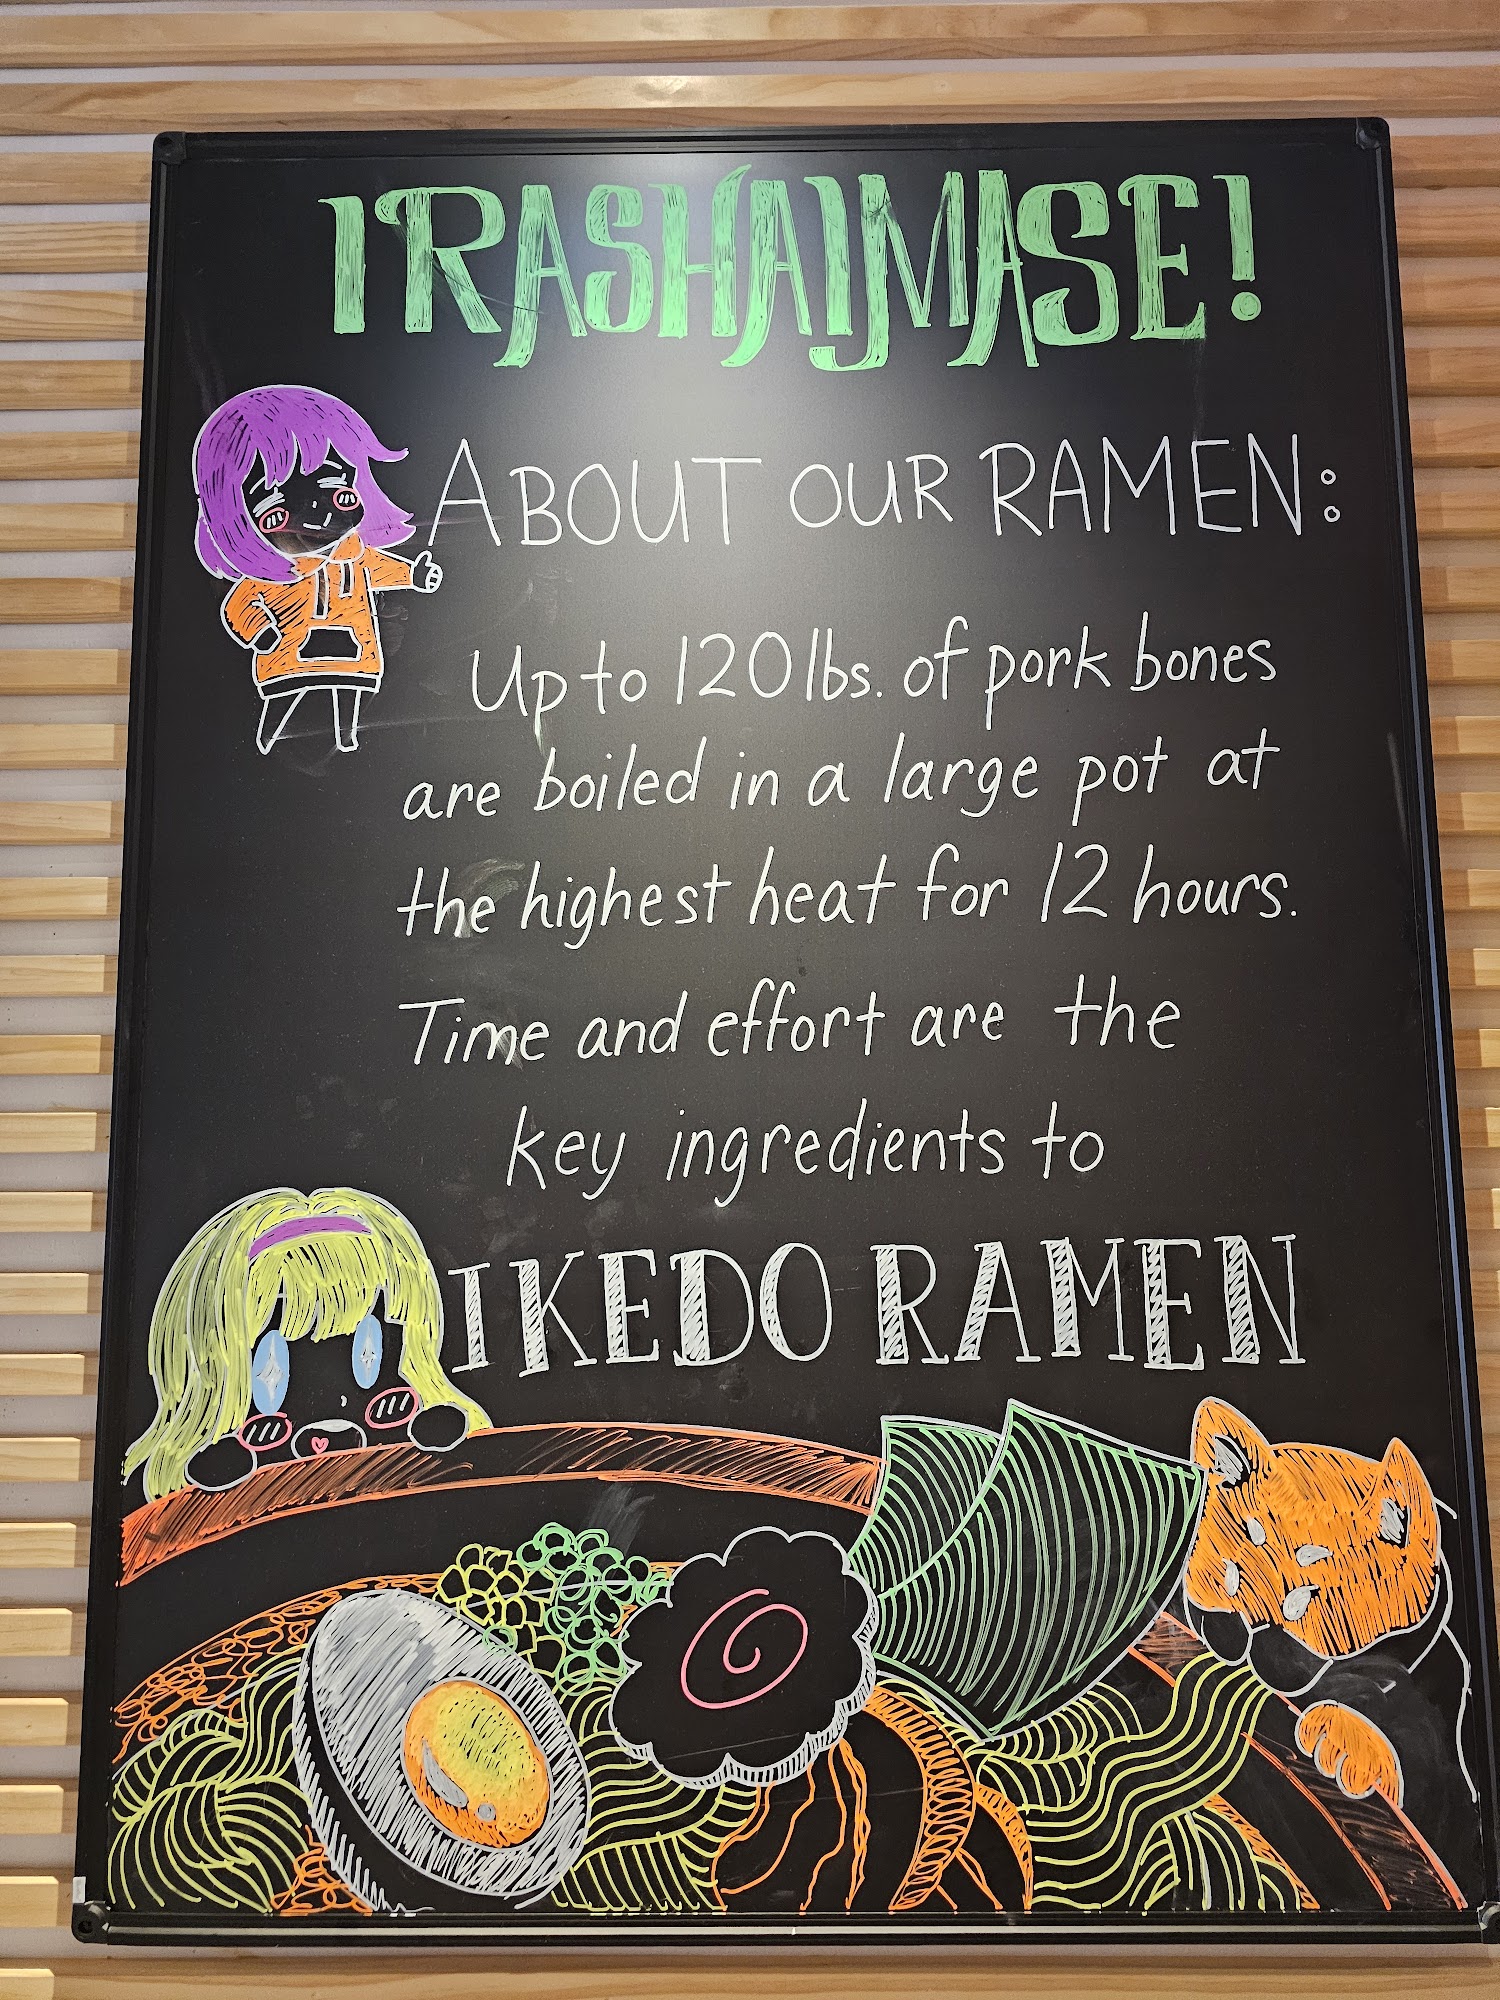 IRASHAIMASE!
ABOUT OUR RAMEN:
Up to 120 lbs. of pork bones
are boiled in a large pot at
the highest heat for 12 hours.
Time and effort are the
key ingredients to
IKEDO RAMEN